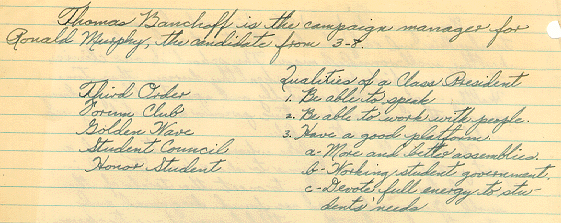 Thomas Banchoff is the campaign manager for
Ronald Murphy, the candidate from 3-8.
Third Order
Forum Club
Golden Wave
Student Council
Honor Student
Qualities of a Class President
1. Be able to speak
2. Be able to work with people.
3. Have a good platform.
a- More and better assemblies.
b- Working student government.
c- Devote full energy to stu-
dents' needs